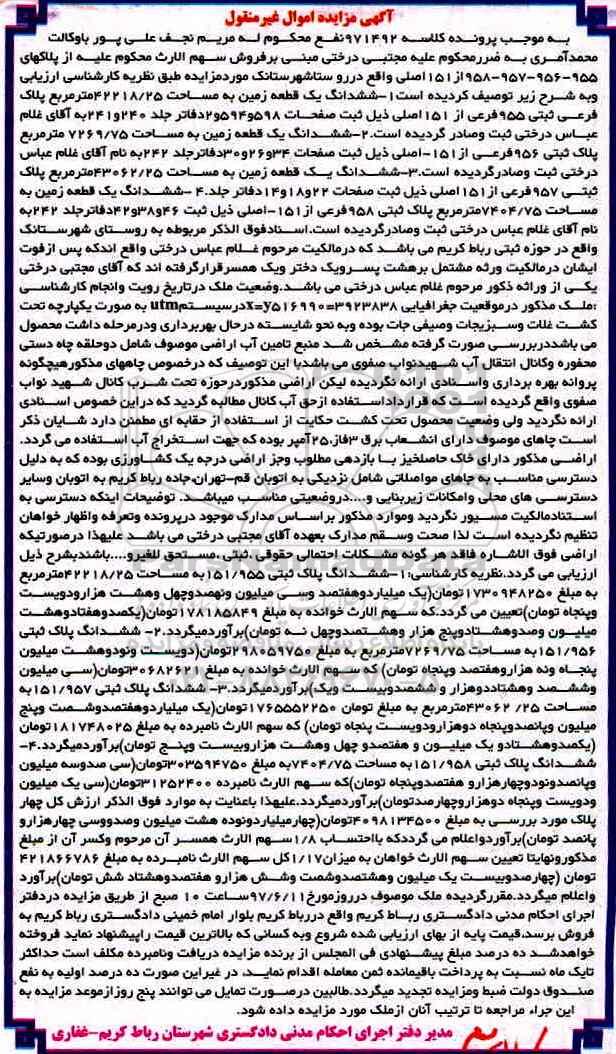 آگهی مزایده اموال غیرمنقول
به موجب پرونده کلاسه ۹۷۱۴۹۲نفع محکوم له مریم نجف علی پور باوکالت
محمدآمری به ضررمحکوم علیه مجتبی درختی مبنی برفروش سهم الارث محکوم علیه از پلاکهای
۹۵۵-۹۵۶-۹۵۷-۹۵۸از۱۵۱اصلی واقع دررو ستاشهرستانک موردمزایده طبق نظریه کارشناسی ارزیابی
وبه شرح زیر توصیف گردیده است۱-ششدانگ یک قطعه زمین به مساحت ۴۲۲۱۸/۲۵مترمربع پلاک
فرعی ثبتی ۹۵۵فرعی از ۱۵۱اصلی ذیل ثبت صفحات ۵۹۸و۵۹۴و۲دفاتر جلد ۲۴۰و۲۴۱به آقای غلام
عباس درختی ثبت وصادر گردیده است.۲-ششدانگ یک قطعه زمین به مساحت ۷۲۶۹/۷۵ مترمربع
پلاک ثبتی ۹۵۶فرعی از۱۵۱-اصلی ذیل ثبت صفحات ۳۴و۲۶و۳۰دفاترجلد ۲۴۲به نام آقای غلام عباس
درختی ثبت وصادرگردیده است.۳-ششدانگ یک قطعه زمین به مساحت ۴۳۰۶۲/۲۵مترمربع پلاک
ثبتی ۹۵۷فرعی از۱۵۱اصلی ذیل ثبت صفحات ۲۲و۱۸و۱۴دفاتر جلد.۴ -ششدانگ یک قطعه زمین به
مساحت ۷۴۰۴/۷۵مترمربع پلاک ثبتی ۹۵۸فرعی از۱۵۱-اصلی ذیل ثبت ۴۶و۳۸و۴۲دفاترجلد ۲۴۲به
نام آقای غلام عباس درختی ثبت وصادرگردیده است.اسنادفوق الذکر مربوطه به روستای شهرستانک
واقع در حوزه ثبتی رباط کریم می باشد که درمالکیت مرحوم غلام عباس درختی واقع اندکه پس ازفوت
ایشان درمالکیت ورثه مشتمل برهشت پسرویک دختر ویک همسرقرارگرفته اند که آقای مجتبی درختی
یکی از وراثه ذکور مرحوم غلام عباس درختی می باشد.وضعیت ملک درتاریخ رویت وانجام کارشناسی
:ملک مذکور درموقعیت جغرافیایی ۳۹۲۳۸۳۸=x=y۵۱۶۹۹۰درسیستمutm به صورت یکپارچه تحت
کشت غلات وسبزیجات وصیفی جات بوده وبه نحو شایسته درحال بهربرداری ودرمرحله داشت محصول
می باشددربررسی صورت گرفته مشخص شد منبع تامین آب اراضی موصوف شامل دوحلقه چاه دستی
محفوره وکانال انتقال آب شهیدنواب صفوی می باشدبا این توصیف که درخصوص چاههای مذکورهیچگونه
پروانه بهره برداری واسنادی ارائه نگردیده لیکن اراضی مذکوردرحوزه تحت شرب کانال شهید نواب
صفوی واقع گردیده است که قرارداداستفاده ازحق آب کانال مطالبه گردید که دراین خصوص اسنادی
ارائه نگردید ولی وضعیت محصول تحت کشت حکایت از استفاده از حقابه ای مطمئن دارد شایان ذکر
است چاهای موصوف دارای انشعاب برق ۳فاز.۲۵آمپر بوده که جهت استخراج آب استفاده می گردد.
اراضی مذکور دارای خاک حاصلخیز با بازدهی مطلوب وجز اراضی درجه یک کشاورزی بوده که به دلیل
دسترسی مناسب به جاهای مواصلاتی شامل نزدیکی به اتوبان قم-تهران،جاده رباط کریم به اتوبان وسایر
دسترسی های محلی وامکانات زیربنایی و....دروضعیتی مناسب میباشد. توضیحات اینکه دسترسی به
استنادمالکیت مسیور نگردید وموارد مذکور براساس مدارک موجود درپرونده وتعرفه واظهار خواهان
تنظیم نگردیده است لذا صحت وسقم مدارک بعهده آقای مجتبی درختی می باشد علیهذا درصورتیکه
اراضی فوق الاشاره فاقد هر گونه مشکلات احتمالی حقوقی،ثبتی ،مستحق للغیرو....باشندبشرح ذیل
ارزیابی می گردد.نظریه کارشناسی:۱-ششدانگ پلاک ثبتی ۱۵۱/۹۵۵به مساحت ۴۲۲۱۸/۲۵مترمربع
به مبلغ ۱۷۳۰۹۴۸۲۵۰تومان(یک میلیاردوهفتصد وسی میلیون ونهصدوچهل وهشت هزارودویست
وپنجاه تومان)تعیین می گردد.که سهم الارث خوانده به مبلغ ۱۷۸۱۸۵۸۴۹تومان(یکصدوهفتادوهشت
میلیون وصدوهشتادوپنج هزار وهشتصدوچهل نه تومان)برآوردمیگردد.۲- ششدانگ پلاک ثبتی
۱۵۱/۹۵۶به مساحت ۷۲۶۹/۷۵مترمربع به مبلغ ۲۹۸۰۵۹۷۵۰تومان(دویست ونودوهشت میلیون
پنجاه ونه هزاروهفتصد وپنجاه تومان) که سهم الارث خوانده به مبلغ ۳۰۶۸۲۶۲۱تومان(سی میلیون
وششصد وهشتاددوهزار و ششصدوبیست ویک)برآوردمیگردد.۳- ششدانگ پلاک ثبتی ۱۵۱/۹۵۷به
مساحت ۴۳۰۶۲ /۲۵مترمربع به مبلغ تومان ۱۷۶۵۵۵۲۲۵۰تومان(یک میلیاردوهفتصدوشصت وپنج
میلیون وپانصدوپنجاه دوهزارودویست پنجاه تومان) که سهم الارث نامبرده به مبلغ ۱۸۱۷۴۸۰۲۵تومان
(یکصدوهشتادو یک میلیون و هفتصدو چهل وهشت هزاروبیست وپنج تومان)برآوردمیگردد.۴-
ششدانگ پلاک ثبتی ۱۵۱/۹۵۸به مساحت ۷۴۰۴/۷۵به مبلغ ۳۰۳۵۹۴۷۵۰تومان(سی صدوسه میلیون
وپانصدونودوچهارهزارو هفتصدوپنجاه تومان)که سهم الارث نامبرده ۳۱۲۵۲۴۰۰تومان(سی یک میلیون
ودویست وپنجاه دوهزاروچهارصدتومان)برآوردمیگردد.علیهذا باعنایت به موارد فوق الذکر ارزش کل چهار
پلاک مورد بررسی به مبلغ ۴۰۹۸۱۳۴۵۰۰تومان(چهارمیلیاردونوده هشت میلیون وصدوسی چهارهزارو
پانصد تومان)برآوردواعلام می گرددکه بااحتساب ۱/۸سهم الارث همسر آن مرحوم وکسر آن از مبلغ
مذکورونهایتا تعیین سهم الارث خواهان به میزان۱/۱۷کل سهم الارث نامبرده به مبلغ ۴۲۱۸۶۶۷۸۶
تومان (چهارصدوبیست یک میلیون وهشتصدوشصت وشش هزارو هفتصدوهشتاد شش تومان)برآورد
واعلام میگردد.مقررگردیده ملک موصوف درروزمورخ۹۷/۶/۱۱ساعت ۱۰ صبح از طریق مزایده دردفتر
اجرای احکام مدنی دادگستری رباط کریم واقع دررباط کریم بلوار امام خمینی دادگستری رباط کریم به
فروش برسد،قیمت پایه از بهای ارزیابی شده شروع وبه کسانی که بالاترین قیمت راپیشنهاد نماید فروخته
خواهدشد ده درصد مبلغ پیشنهادی فی المجلس از برنده مزایده دریافت ونامبرده مکلف است حداکثر
تایک ماه نسبت به پرداخت باقیمانده ثمن معامله اقدام نمایید، در غیراین صورت ده درصد اولیه به نفع
صندوق دولت ضبط ومزایده تجدید میگردد.طالبین درصورت تمایل می توانند پنج روزازموعد مزایده به
این جراء مراجعه تا ترتیب آنان ازملک مورد مزایده داده شود.
مدیر دفتر اجرای احکام مدنی دادگستری شهرستان رباط کریم-غفاری